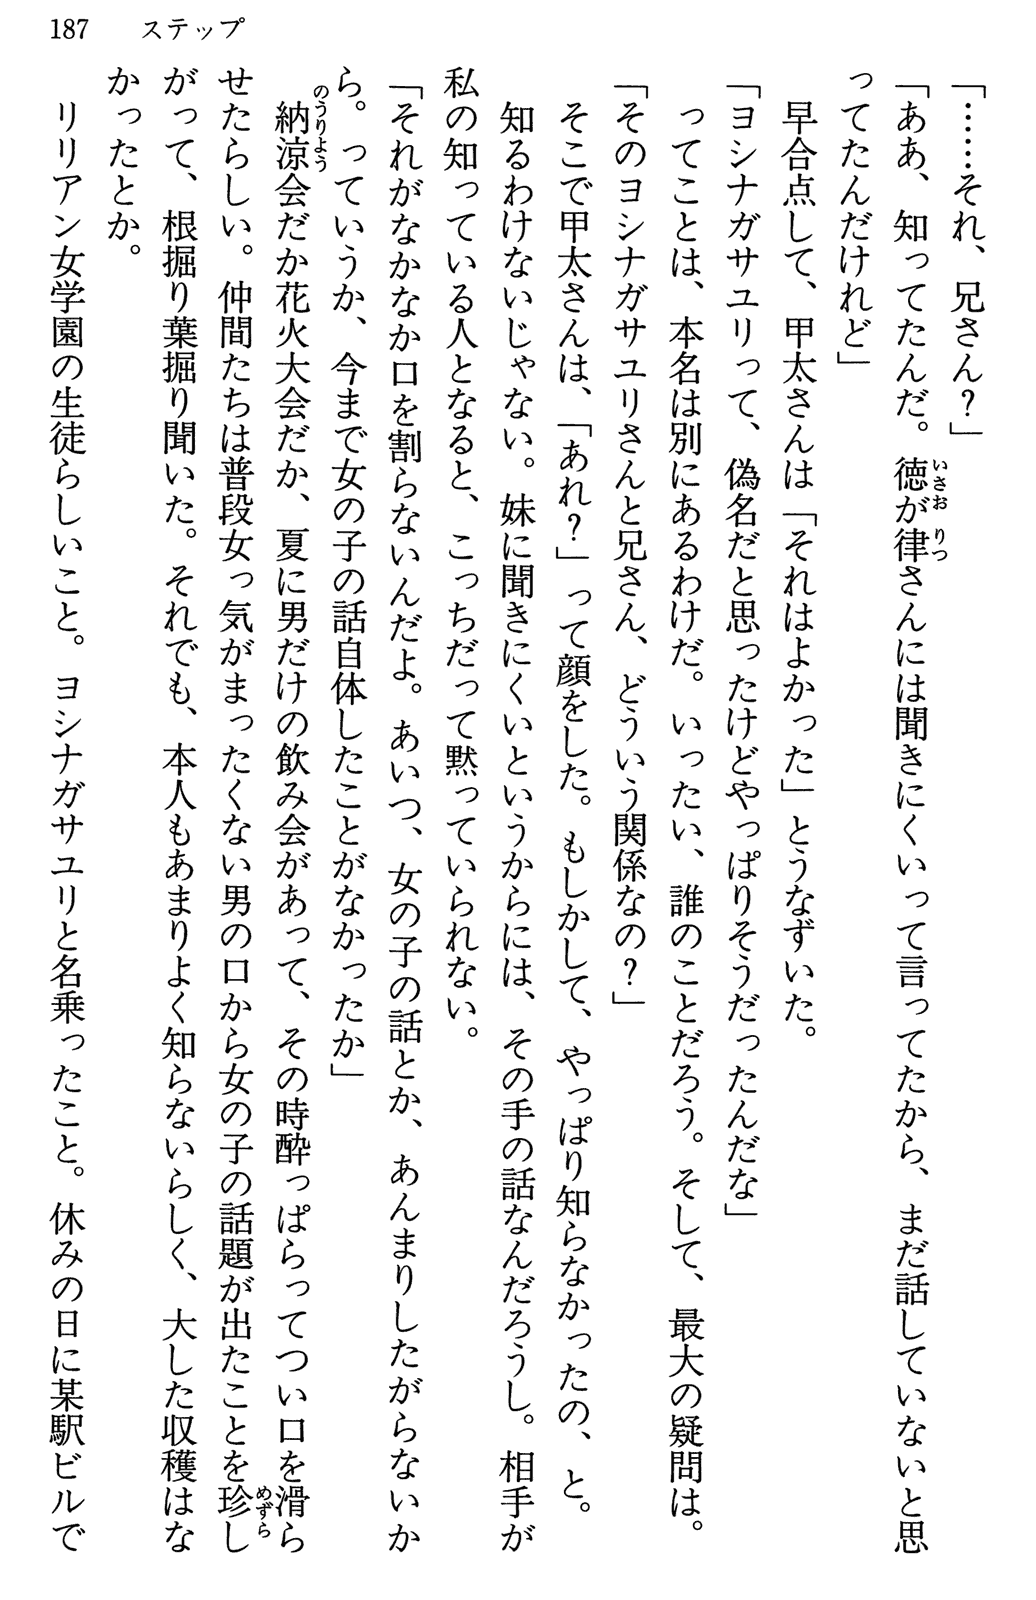 187　ステップ
「……それ、兄さん？」
「ああ、知ってたんだ。徳が律さんには聞きにくいって言ってたから、まだ話していないと思
ってたんだけれど」
早合点して、甲太さんは「それはよかった」とうなずいた。
「ヨシナガサユリって、偽名だと思ったけどやっぱりそうだったんだな」
ってことは、本名は別にあるわけだ。いったい、誰のことだろう。そして、最大の疑問は。
「そのヨシナガサユリさんと兄さん、どういう関係なの？」
そこで甲太さんは、「あれ？」って顔をした。もしかして、やっぱり知らなかったの、と。
知るわけないじゃない。妹に聞きにくいというからには、その手の話なんだろうし。相手が
私の知っている人となると、こっちだって黙っていられない。
「それがなかなか口を割らないんだよ。あいつ、女の子の話とか、あんまりしたがらないか
ら。っていうか、今まで女の子の話自体したことがなかったか」
納涼会だか花火大会だか、夏に男だけの飲み会があって、その時酔っぱらってつい口を滑ら
せたらしい。仲間たちは普段女っ気がまったくない男の口から女の子の話題が出たことを珍し
がって、根掘り葉掘り聞いた。それでも、本人もあまりよく知らないらしく、大した収穫はな
かったとか。
リリアン女学園の生徒らしいこと。ヨシナガサユリと名乗ったこと。休みの日に某駅ビルで
いさお
りつ
のうりよう
めずら